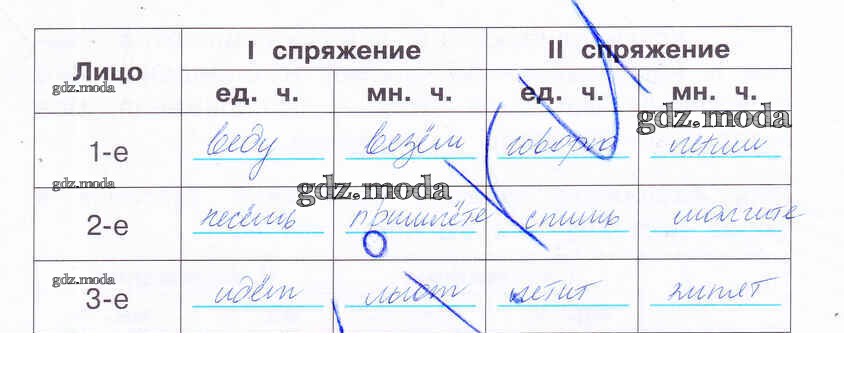 I спряжение II спряжение
Лицо
gdz.moda
ед. ч. мн. ч. ед. ч. мн. ч.
gdz.moda
1-е веду везём говорю летим
gdz.moda gdz.moda
2-е несёшь пришлёте спишь молчите
gdz.moda
3-е идёт льют летит